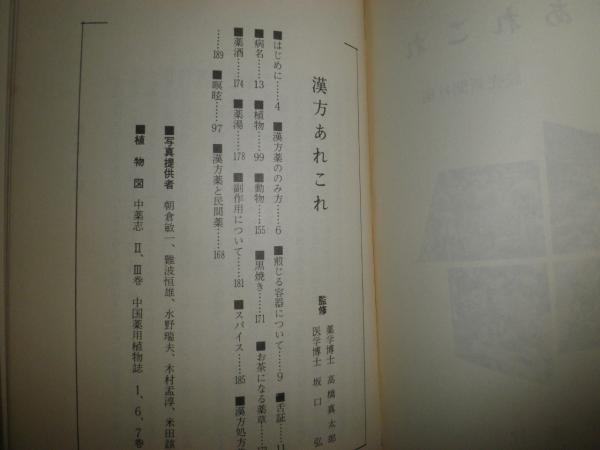 漢方あれこれ
監修 薬学博士 高橋真太郎
医学博士 坂口 弘
■はじめに……4 ■漢方薬ののみ方……6 ■煎じる容器について……9 ■舌証……11
■病名……13 ■植物……99 ■動物……155 ■黒焼き……171 ■お茶になる薬草……
■薬酒……174 ■薬湯……178 ■副作用について……181 ■スパイス……185 ■漢方処方
……189 ■瞑眩……97 ■漢方薬と民間薬……168
■写真提供者 朝倉敏一、難波恒雄、水野瑞夫、木村孟淳、米田該
■植物図 中薬志 Ⅱ、Ⅲ巻 中国薬用植物誌 1、6、7巻
あれこれ